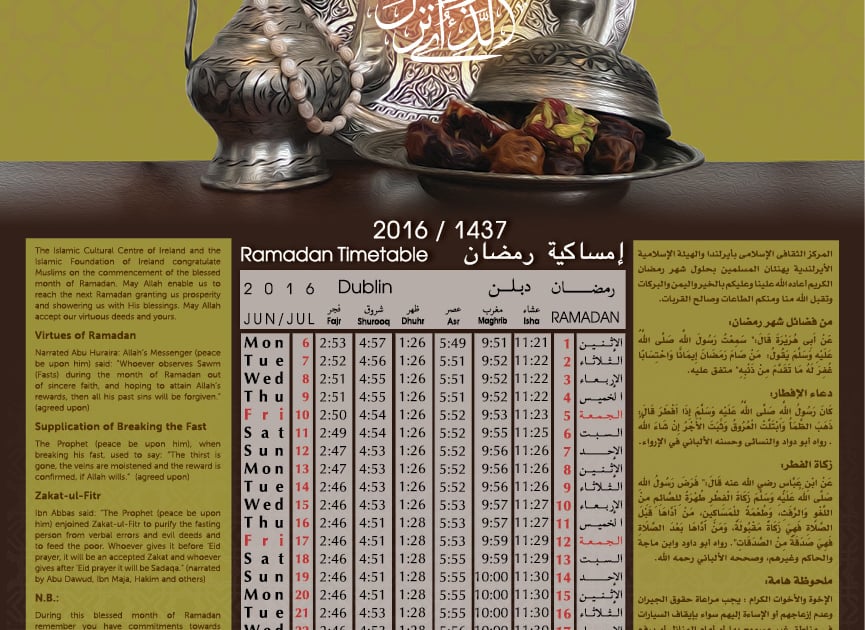 2016 / 1437
Ramadan Timetable إمساكية رمضان
The Islamic Cultural Centre of Ireland and the
Islamic Foundation of Ireland congratulate
Muslims on the commencement of the blessed
month of Ramadan. May Allah enable us to
reach the next Ramadan granting us prosperity
and showering us with His blessings. May Allah
accept our virtuous deeds and yours.
Virtues of Ramadan
Narrated Abu Huraira: Allah's Messenger (peace
be upon him) said: "Whoever observes Sawm
(Fasts) during the month of Ramadan out
of sincere faith, and hoping to attain Allah's
rewards, then all his past sins will be forgiven."
(agreed upon)
Supplication of Breaking the Fast
The Prophet (peace be upon him), when
breaking his fast, used to say: "The thirst is
gone, the veins are moistened and the reward is
confirmed, if Allah wills." (agreed upon)
Zakat-ul-Fitr
Ibn Abbas said: "The Prophet (peace be upon
him) enjoined Zakat-ul-Fitr to purify the fasting
person from verbal errors and evil deeds and
to feed the poor. Whoever gives it before 'Eid
prayer, it will be an accepted Zakat and whoever
gives after 'Eid prayer it will be Sadaqa." (narrated
by Abu Dawud, Ibn Maja, Hakim and others)
N.B.:
During this blessed month of Ramadan
remember you have commitments towards
2016 Dublin دبلن رمضان
فجر شروق ظهر عصر مغرب عشاء
JUN/JUL Fajr Shurooq Dhuhr Asr Maghrib Isha RAMADAN
Mon 6 2:53 4:57 1:26 5:49 9:51 11:21 1 الإثنين
Tue 7 2:52 4:56 1:26 5:51 9:52 11:22 2 الثلاثاء
Wed 8 2:51 4:55 1:26 5:51 9:52 11:22 3 الإربعاء
Thu 9 2:51 4:55 1:26 5:51 9:52 11:22 4 الخميس
Fri 10 2:50 4:54 1:26 5:52 9:53 11:23 5 الجمعة
Sat 11 2:49 4:54 1:26 5:52 9:55 11:25 6 السبت
Sun 12 2:47 4:53 1:26 5:52 9:56 11:26 7 الإحد
Mon 13 2:47 4:53 1:26 5:52 9:56 11:26 8 الإثنين
Tue 14 2:46 4:53 1:26 5:52 9:56 11:26 9 الثلاثاء
Wed 15 2:46 4:53 1:26 5:53 9:57 11:27 10 الإربعاء
Thu 16 2:46 4:51 1:28 5:53 9:57 11:27 11 الخميس
Fri 17 2:46 4:51 1:28 5:53 9:59 11:29 12 الجمعة
Sat 18 2:46 4:51 1:28 5:55 9:59 11:29 13 السبت
Sun 19 2:46 4:51 1:28 5:55 10:00 11:30 14 الإحد
Mon 20 2:46 4:51 1:28 5:55 10:00 11:30 15 الإثنين
Tue 21 2:46 4:53 1:28 5:55 10:00 11:30 16 الثلاثاء
المركز الثقافى الإسلامى بأيرلندا والهيئة الإسلامية
الأيرلندية يهنئان المسلمين بحلول شهر رمضان
الكريم أعاده الله علينا وعليكم بالخير واليمن والبركات
وتقبل الله منا ومنكم الطاعات وصالح القربات.
من فضائل شهر رمضان:
عَنْ أَبِي هُرَيْرَةَ قَالَ:" سَمِعْتُ رَسُولَ اللهِ صَلَّى اللهُ
عَلَيْهِ وَسَلَّمَ يَقُولُ: مَنْ صَامَ رَمَضَانَ إِيمَانًا وَاحْتِسَابًا
غُفِرَ لَهُ مَا تَقَدَّمَ مِنْ ذَنْبِهِ" متفق عليه.
دعاء الإفطار:
كَانَ رَسُولُ اللهِ صَلَّى اللهُ عَلَيْهِ وَسَلَّمَ إِذَا أَفْطَرَ قَالَ:
ذَهَبَ الظَّمَأُ وَابْتَلَّتْ الْعُرُوقُ وَثَبَتَ الْأَجْرُ إِنْ شَاءَ اللهُ
. رواه أبو داود والنسائى وحسنه الألباني في الإرواء.
زكاة الفطر:
عَنْ ابْنِ عَبَّاسٍ رضي الله عنه قَالَ:" فَرَضَ رَسُولُ اللهِ
صَلَّى اللهُ عَلَيْهِ وَسَلَّمَ زَكَاةَ الْفِطْرِ طُهْرَةً لِلصَّائِمِ مِنْ
اللَّغْوِ وَالرَّفَثِ، وَطُعْمَةً لِلْمَسَاكِينِ، مَنْ أَدَّاهَا قَبْلَ
الصَّلَاةِ فَهِيَ زَكَاةٌ مَقْبُولَةٌ، وَمَنْ أَدَّاهَا بَعْدَ الصَّلَاةِ
فَهِيَ صَدَقَةٌ مِنْ الصَّدَقَاتِ". رواه أبو داود وابن ماجة
والحاكم وغيرهم، وصححه الألباني رحمه الله.
ملحوظة هامة:
الإخوة والأخوات الكرام : يجب مراعاة حقوق الجيران
وعدم إزعاجهم أو الإساءة إليهم سواء بإيقاف السيارات